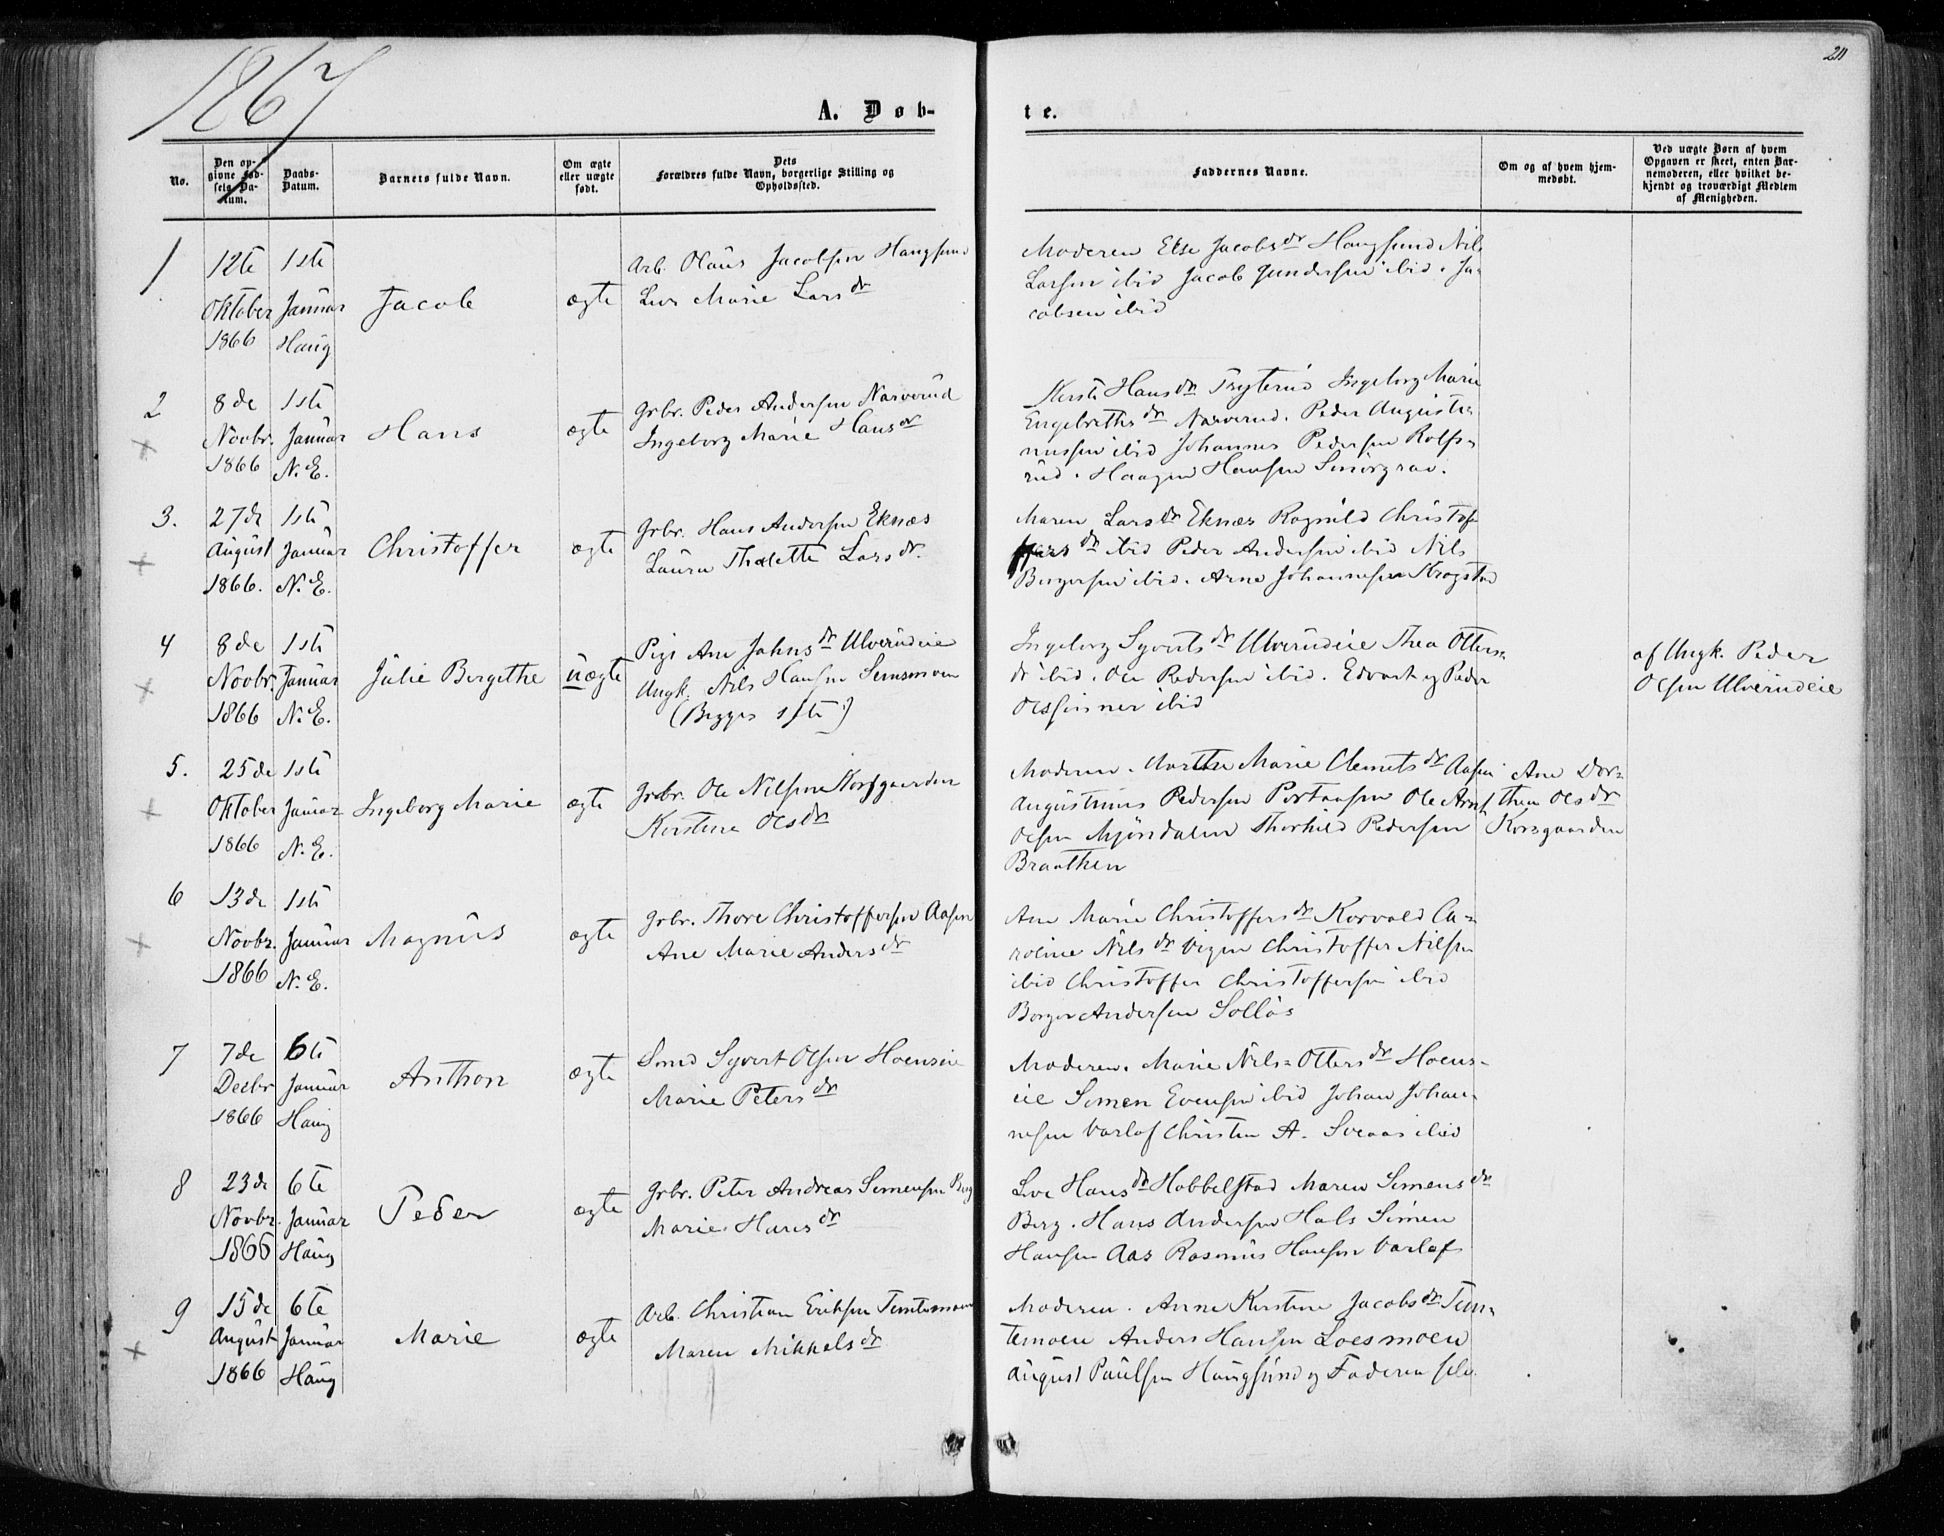 1867
211
A. Døb-
te.
No.
Den op-
givne Fød-
sels Da-
tum.
Daabs-
Datum.
Barnets fulde Navn.
Om ægte
eller uægte
født.
Dets
Forældres fulde Navn, borgerlige Stilling og
Opholdssted.
Faddernes Navne.
Om og af hvem hjem-
medøbt.
Ved uægte Børn af hvem
Opgaven er skeet, enten Bar-
nemoderen, eller hvilket be-
kjendt og troværdigt Medlem
af Menigheden.
1
12te
Oktober
1866
1ste
Januar
Haug
Jacob
ægte
Arb. Olaus Jacobsen Haugsund
Live Marie Larsdr
Moderen Else Jacobsdr Haugsund Nils
Larsen ibid Jacob Gundersen ibid. Ja-
cobsen ibid
2
8de
Novbr.
1866
1ste
Januar
N.E.
Hans
ægte
Grbr. Peder Andersen Narverud
Ingeborg Marie Hansdr
Kersti Hansdr Tryterud Ingeborg Marie
Engebrethsdr Narverud. Peder Augusti-
nussen ibid Johannes Pedersen Rolfs-
rud. Haagen Hansen Smørgrav.
3.
27de
August
1866.
1ste
Januar
N.E.
Christoffer
ægte
Grbr. Hans Andersen Eknæs
Laura Thalette Larsdr.
Maren Larsdr Eknæs Ragnild Christof-
fersdr ibid Peder Andersen ibid Nils
Borgersen ibid. Arne Johannesen Krogstad
4
8de
Novbr.
1866
1ste
Januar
N.E.
Julie Bergethe
uægte
Pige Ane Jahnsdr Ulverudeie
Ungk. Nils Hansen Semsmoen
(Begges 1ste)
Ingeborg Syvertsdr Ulverudeie Thea Otters-
dr ibid. Ole Pedersen ibid. Edvart og Peder
Olssønner ibid
af Ungk. Peder
Olsen Ulverudeie
5.
25de
Oktober
1866
1ste
Januar
N.E.
Ingeborg Marie
ægte
Grbr. Ole Nilsen Korsgaarden
Kerstine Olsdr
Moderen. Marthe Marie Clemetsdr Aasen
Augustinus Pedersen Portaasen Ole Arnt
Olsen Mjøndalen Thorkild Pedersen
Braathen
Ane Dor-
thea Olsdr
Korsgaarden
6
13de
Novbr.
1866
1ste
Januar
N.E.
Magnus
ægte
Grbr. Thore Christoffersen Aasen
Ane Marie Andersdr
Ane Marie Christoffersdr Korvald Ca-
roline Nilsdr Vigen Christoffer Nilsen
ibid Christoffer Christoffersen ibid
Borger Andersen Solløs
7
7de
Decbr
1866
6te
Januar
Haug
Anthon
ægte
Smed Syvert Olsen Hoenseie
Marie Petersdr
Moderen. Marie Nils- Ottersdr Hoens-
eie Simen Evensen ibid Johan Johan-
nesen Varlof Christen A. Sveaas ibid
8
23de
Novbr.
1866
6te
Januar
Haug
Peder
ægte
Grbr. Peter Andreas Simensen Berg
Marie Hansdr
Live Hansdr Hobbelstad Maren Simensdr
Berg. Hans Andersen Hals Simen
Hansen Aas Rasmus Hansen Varlof
9
15de
August
1866
6te
Januar
Haug
Marie
ægte
Arb. Christian Eriksen Temtemoen
Maren Mikkelsdr
Moderen. Anne Kerstine Jacobsdr Tem-
temoen Anders Hansen Loesmoen
August Paulsen Haugsund og Faderen selv